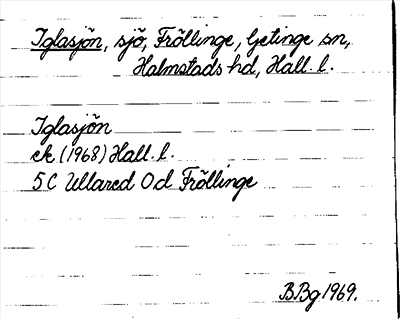 Iglasjön, sjö, Fröllinge, Getinge sn,
Halmstads hd, Hall. l.
Iglasjön
ek (1968) Hall. l.
5C Ullared Od Fröllinge
BBg 1969.